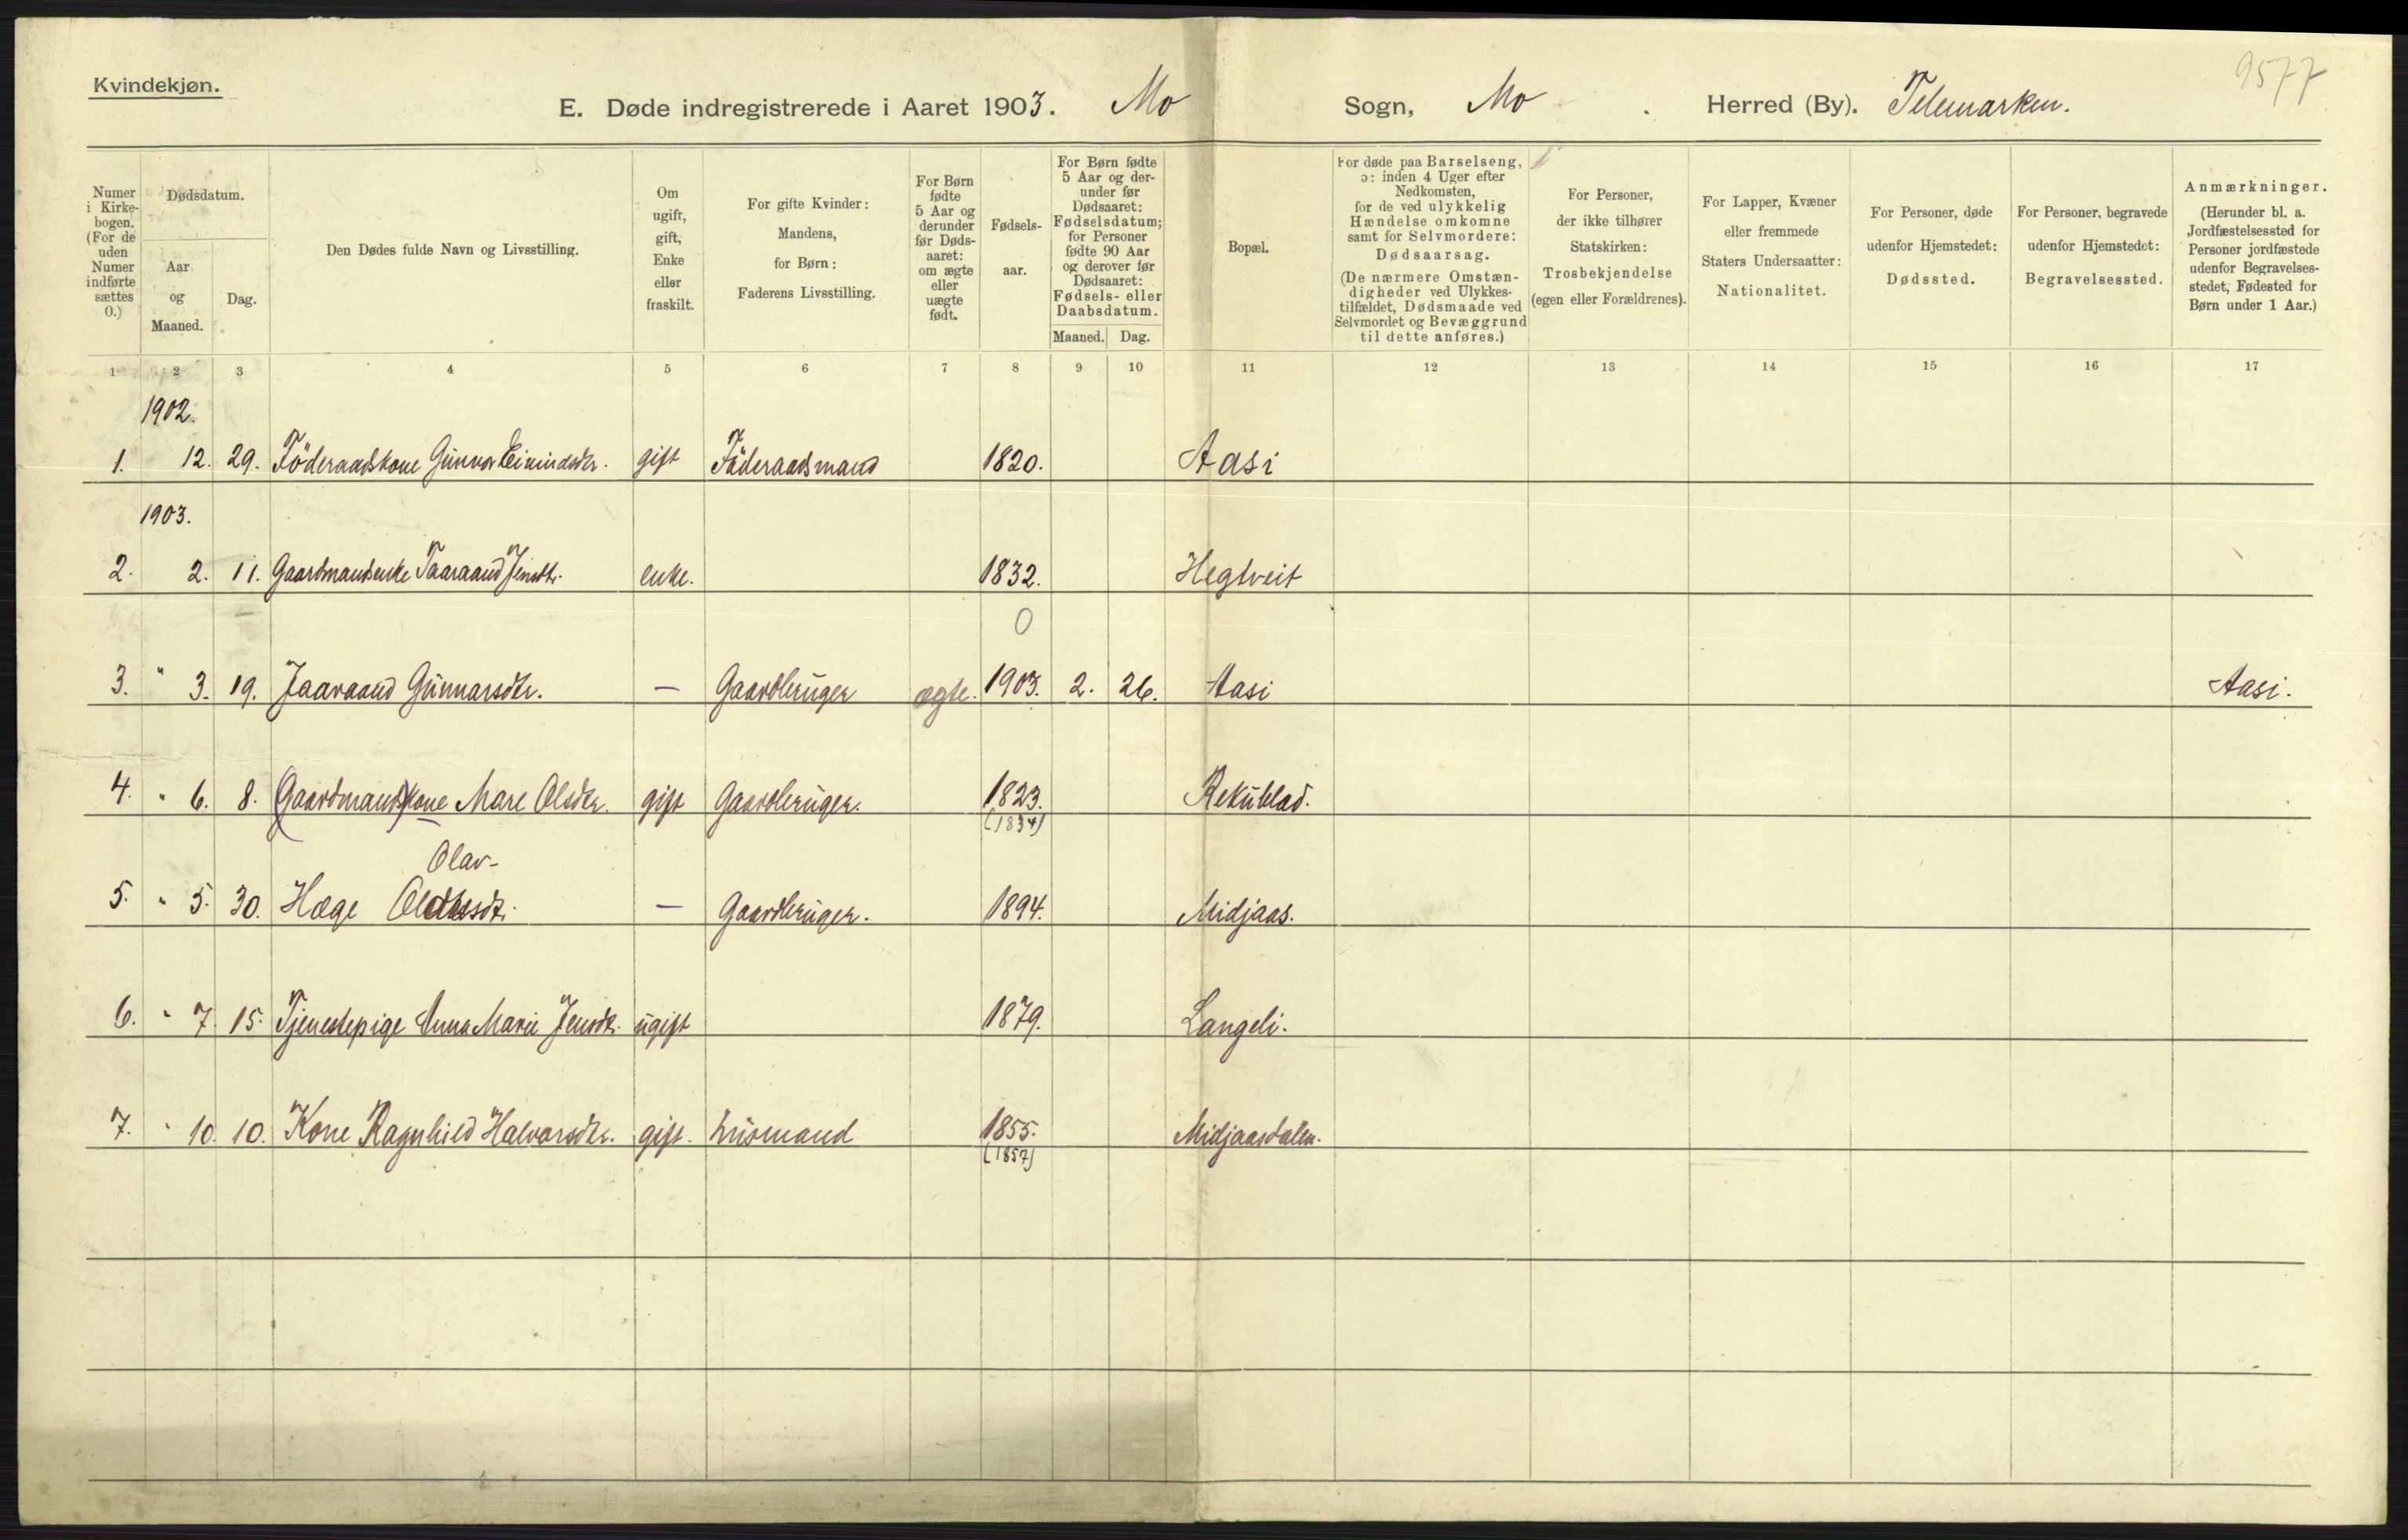 Kvindekjøn.
9577
E. Døde indregistrerede i Aaret 1903. Mo Sogn, Mo Herred (By). Telemarken.
Numer i Kirke-bogen. (For de uden Numer indførte sættes 0.)
Dødsdatum.
Aar og Maaned.
Dag.
Den Dødes fulde Navn og Livsstilling.
Om ugift, gift, Enke eller fraskilt.
For gifte Kvinder: Mandens, for Børn: Faderens Livsstilling.
For Børn fødte 5 Aar og derunder før Døds-aaret: om ægte eller uægte født.
Fødsels-aar.
For Børn fødte 5 Aar og der-under før Dødsaaret: Fødselsdatum; for Personer fødte 90 Aar og derover før Dødsaaret: Fødsels- eller Daabsdatum.
Maaned. Dag.
Bopæl.
For døde paa Barselseng, ɔ: inden 4 Uger efter Nedkomsten, for de ved ulykkelig Hændelse omkomne samt for Selvmordere: Dødsaarsag.
(De nærmere Omstæn-digheder ved Ulykkes-tilfældet, Dødsmaade ved Selvmordet og Bevæggrund til dette anføres.)
For Personer, der ikke tilhører Statskirken: Trosbekjendelse (egen eller Forældrenes).
For Lapper, Kvæner eller fremmede Staters Undersaatter: Nationalitet.
For Personer, døde udenfor Hjemstedet: Dødssted.
For Personer, begravede udenfor Hjemstedet: Begravelsessted.
Anmærkninger. (Herunder bl. a. Jordfæstelsessted for Personer jordfæstede udenfor Begravelses-stedet, Fødested for Børn under 1 Aar.)
1 2 3 4 5 6 7 8 9 10 11 12 13 14 15 16 17
1902.
1. 12. 29. Föderaadskone Gunvor Eivindsdtr. gift Föderaadsmand 1820. Aasi
1903.
2. 2. 11. Gaardmandsenke Taaraand Jensdtr. enke. 1832. Hegtveit
0
3. " 3. 19. Jaaraand Gunnarsdtr. — Gaardbruger ægte. 1903. 2. 26. Aasi Aasi.
4. " 6. 8. (Gaardmands)kone Mare Olsdtr. gift Gaardbruger. 1823. Rekublad.
(1834)
Olav-
5. " 5. 30. Hæge sdtr. — Gaardbruger. 1894. Midjaas.
6. " 7. 15. Tjenestepige Anna Marie Jensdtr. ugift 1879. Langeli.
7. " 10. 10. Kone Ragnhild Halvorsdtr. gift. Husmand 1855. Midjaasdalen.
(1857)